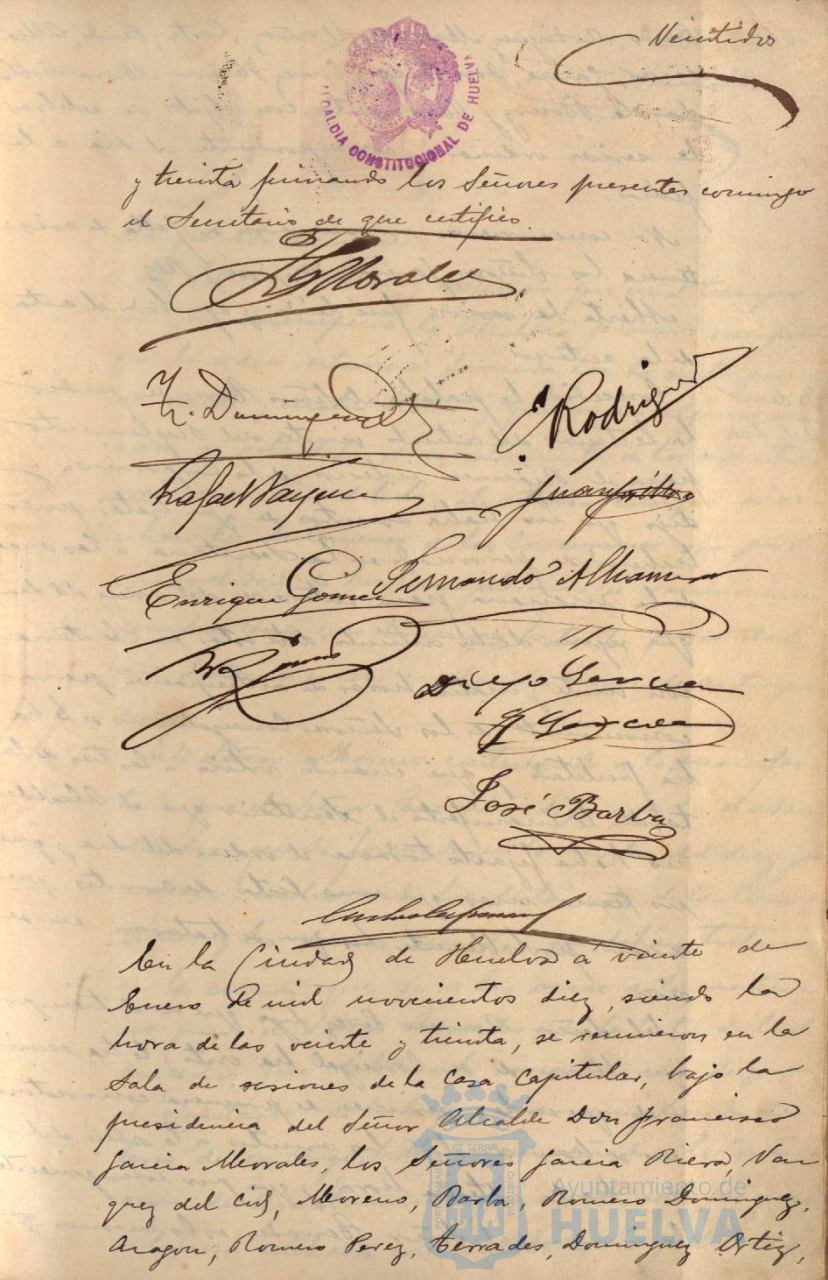 Veintidos
ALCALDIA CONSTITUCIONAL DE HUELVA
y treinta firmando los Señores presentes conmigo
el Secretario de que certifico.
Morales
E. Rodriguez
Rafael Vazquez
Enrique Gomez Fernando
Diego
José Barba
En la Ciudad de Huelva á veinte de
Enero de mil novecientos diez, siendo la
hora de las veinte y treinta, se reunieron en la
Sala de sesiones de la Casa Capitular, bajo la
presidencia del Señor Alcalde Don Francisco
Garcia Morales, los Señores Garcia Riera, Vaz
quez del Cid, Moreno, Barba, Romero Dominguez,
Aragon, Romero Perez, Terrades, Dominguez Ortiz,
Ayuntamiento de
HUELVA